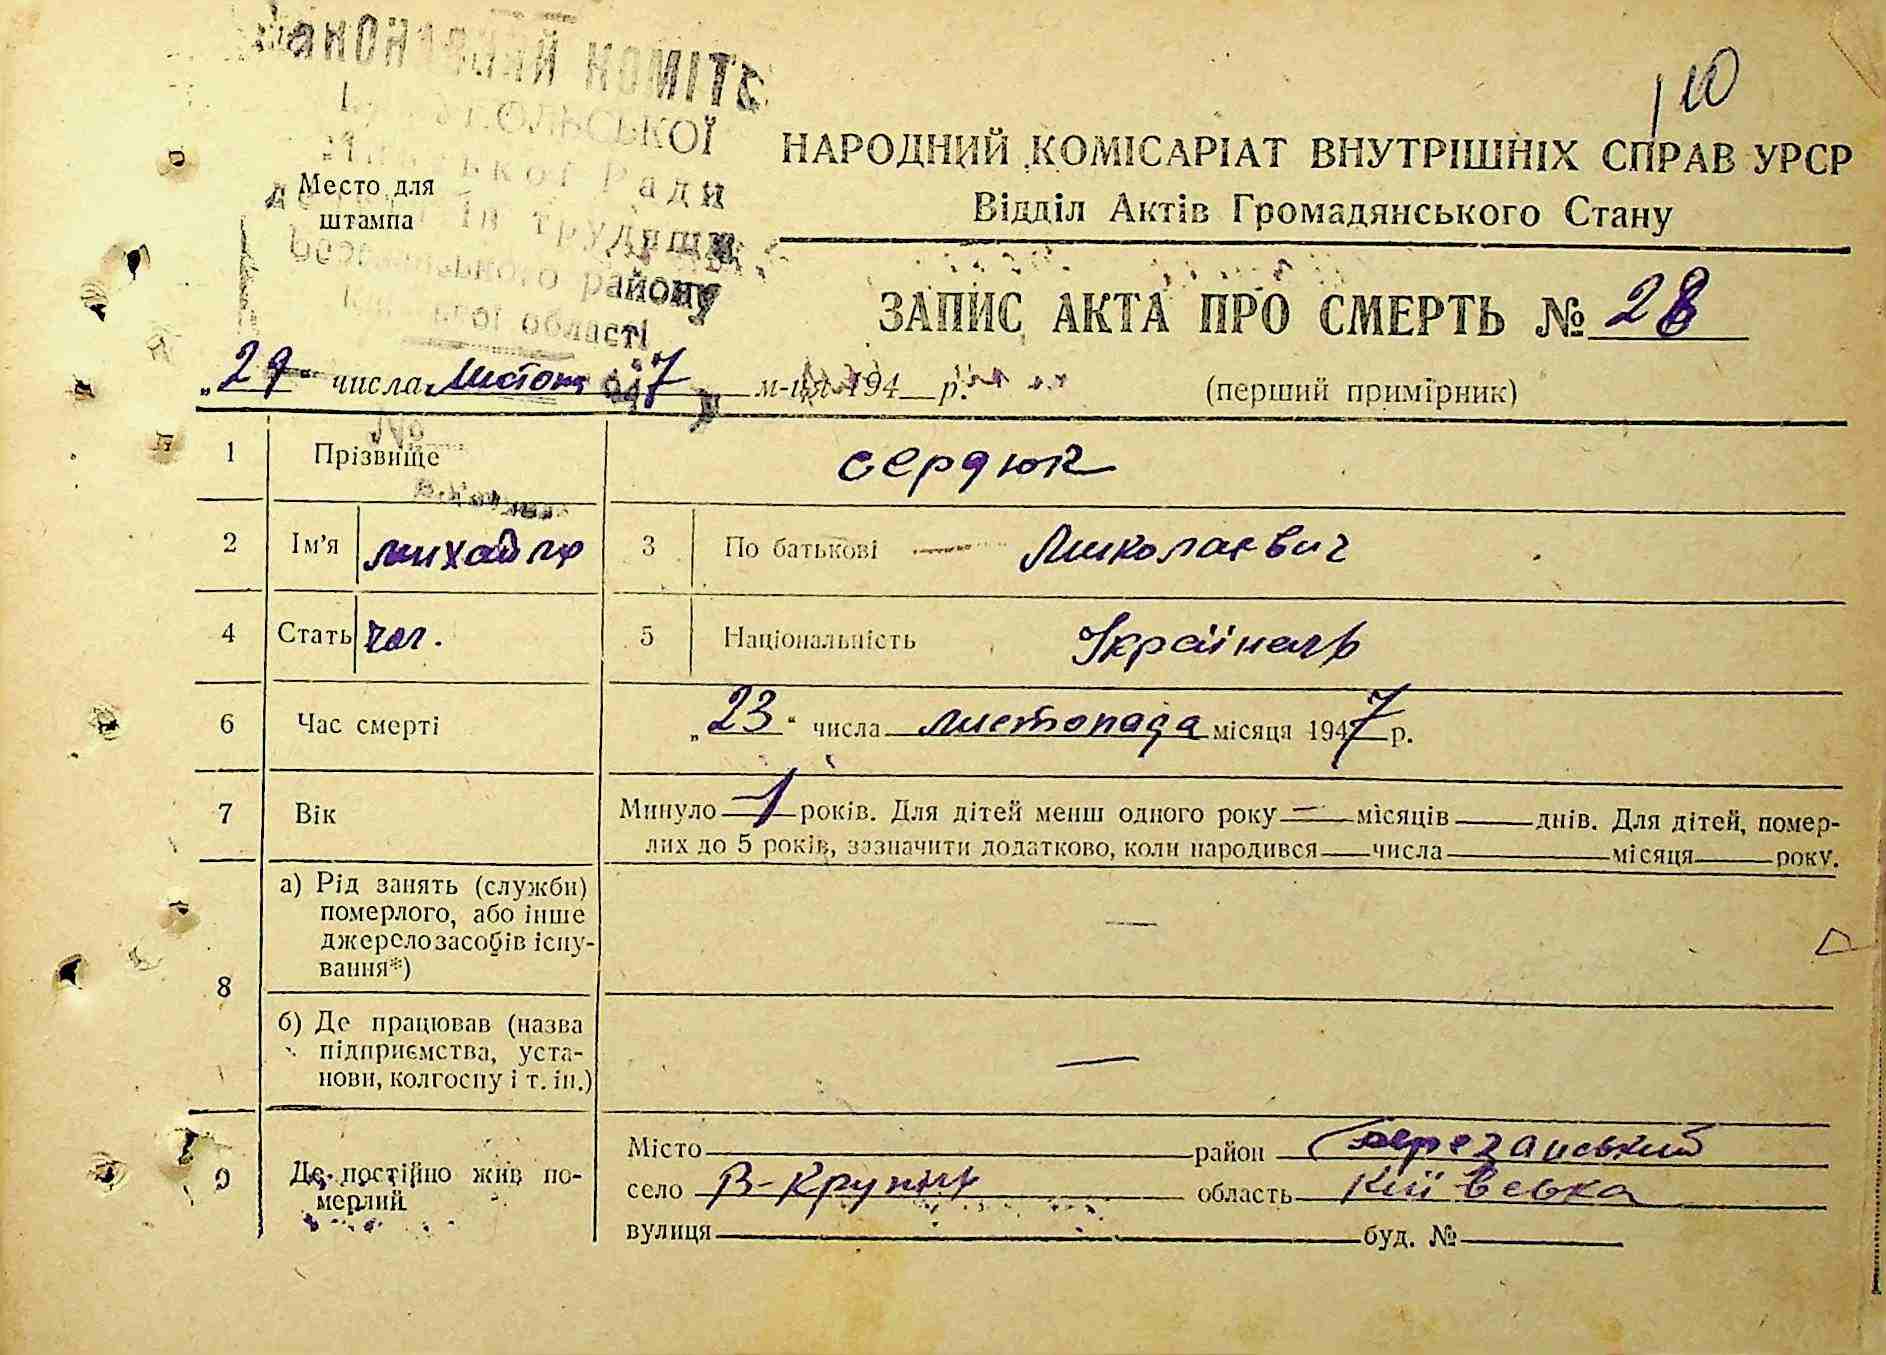 10
НАРОДНИЙ КОМІСАРІАТ ВНУТРІШНІХ СПРАВ УРСР
Відділ Актів Громадянського Стану
Место для
штампа
району
області
ЗАПИС АКТА ПРО СМЕРТЬ № 28
„29“ числа листоп 7 м-ця 194 р.
(перший примірник)
1 Прізвище Сердюк
2 Ім'я Михайло 3 По батькові Миколаєвич
4 Стать чол. 5 Національність Українець
6 Час смерті „23“ числа листопада місяця 1947 р.
7 Вік Минуло 1 років. Для дітей менш одного року — місяців днів. Для дітей, помер-
лих до 5 років, зазначити додатково, коли народився числа місяця року.
8 а) Рід занять (служби)
померлого, або інше
джерело засобів існу-
вання*)
—
б) Де працював (назва
підприємства, уста-
нови, колгоспу і т. ін.)
—
9 Де постійно жив по-
мерлий
Місто район Березанський
село В-Крупіль область Київська
вулиця буд. №